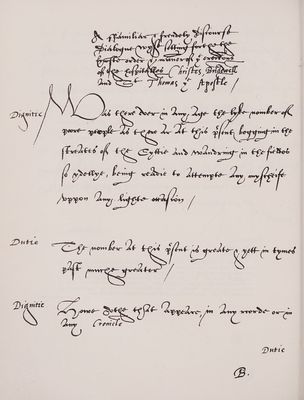 A ffamiliar & frendely discourse
Dialogue wyse setting foorthe the
order & maner of ye erection
of the hospitalles Christes Bridewell
and Saint Thomas ye Apostle /
Dignitie
Was there ever in Any Age the lyke number of
pore people As there Ar At this p'sent begging in the
streates of the Cyttie and wandring in the fieldes
so ydellye, being readie to Attempte Any myscheife
vppon Any lighte occasion /
Dutie
The number At this p'sent is greate & yett in tymes
past muche greater /
Dignitie
Howe dothe that Appeare, in Any recorde or in
Any Cronicle
Dutie
B.